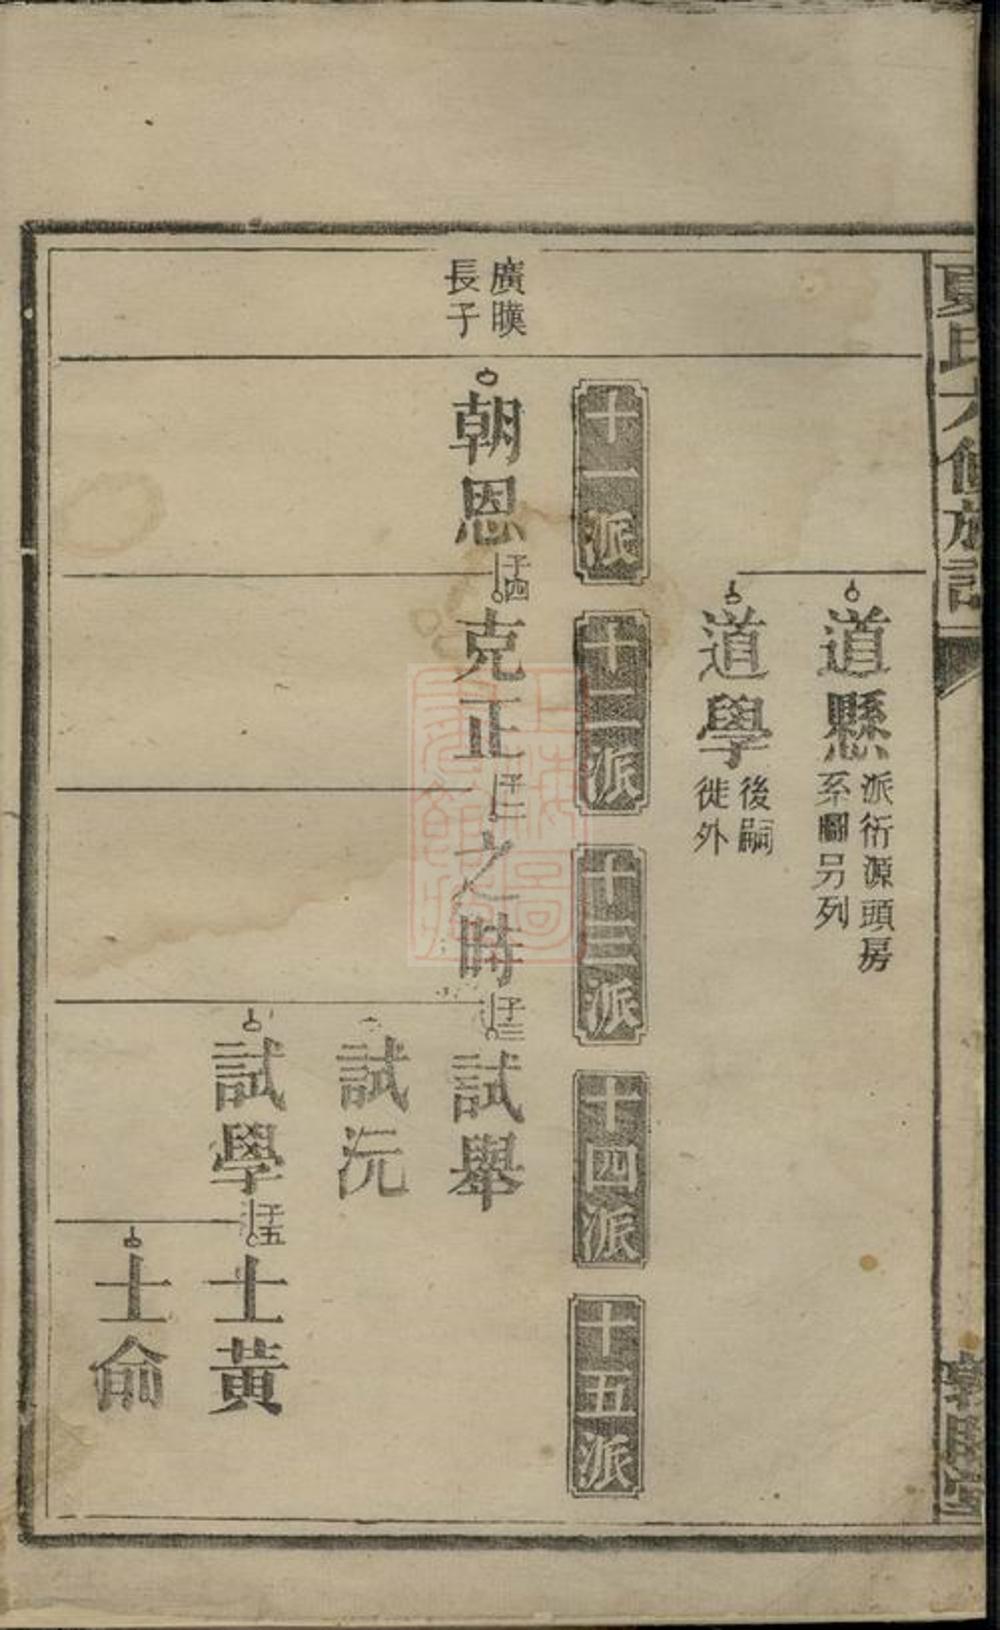 夏氏六修族譜
敦睦堂
道縣
派衍源頭房
系圖另列
道學
後嗣
徙外
十一派
十二派
十三派
十四派
十五派
廣暯
長子
朝恩
子四
克正
子二
之時
子三
試舉
試沅
試學
子五
士黃
士俞